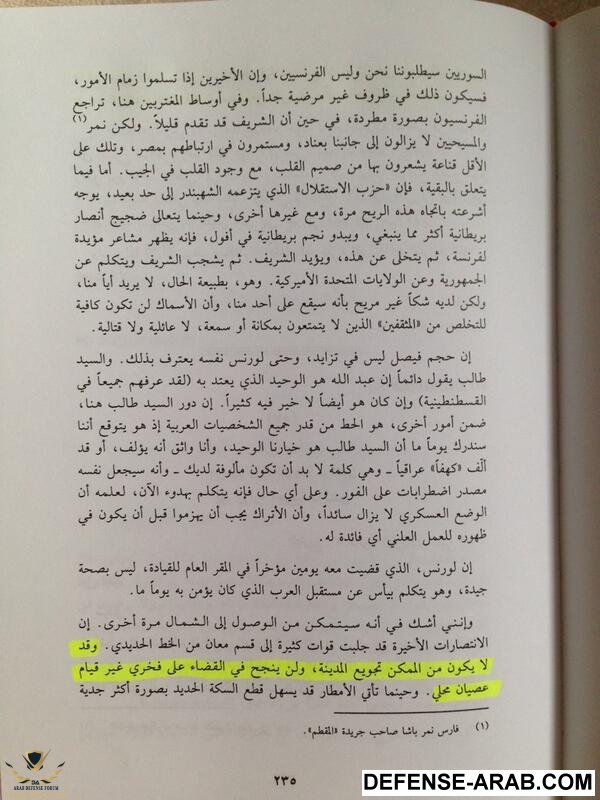 السوريين سيطلبوننا نحن وليس الفرنسيين، وإن الأخيرين إذا تسلموا زمام الأمور،
فسيكون ذلك في ظروف غير مرضية جداً. وفي أوساط المغتربين هنا، تراجع
الفرنسيون بصورة مطردة، في حين أن الشريف قد تقدم قليلاً. ولكن نمر(١)
والمسيحيين لا يزالون إلى جانبنا بعناد، ومستمرون في ارتباطهم بمصر، وتلك على
الأقل قناعة يشعرون بها من صميم القلب، مع وجود القلب في الجيب. أما فيما
يتعلق بالبقية، فإن «حزب الاستقلال» الذي يتزعمه الشهبندر إلى حد بعيد، يوجه
أشرعته باتجاه هذه الريح مرة، ومع غيرها أخرى، وحينما يتعالى ضجيج أنصار
بريطانية أكثر مما ينبغي، ويبدو نجم بريطانية في أفول، فإنه يظهر مشاعر مؤيدة
لفرنسة، ثم يتخلى عن هذه، ويؤيد الشريف. ثم يشجب الشريف ويتكلم عن
الجمهورية وعن الولايات المتحدة الأميركية. وهو، بطبيعة الحال، لا يريد أياً منا،
ولكن لديه شكاً غير مريح بأنه سيقع على أحد منا، وأن الأسماك لن تكون كافية
للتخلص من «المثقفين» الذين لا يتمتعون بمكانة أو سمعة، لا عائلية ولا قتالية.
إن حجم فيصل ليس في تزايد، وحتى لورنس نفسه يعترف بذلك. والسيد
طالب يقول دائماً إن عبد الله هو الوحيد الذي يعتد به (لقد عرفهم جميعاً في
القسطنطينية) وإن كان هو أيضاً لا خير فيه كثيراً. إن دور السيد طالب هنا،
ضمن أمور أخرى، هو الحط من قدر جميع الشخصيات العربية إذ هو يتوقع أننا
سندرك يوماً ما أن السيد طالب هو خيارنا الوحيد، وأنا واثق أنه يؤلف، أو قد
ألّف «كهفاً» عراقياً ـ وهي كلمة لا بد أن تكون مألوفة لديك ـ وأنه سيجعل نفسه
مصدر اضطرابات على الفور. وعلى أي حال فإنه يتكلم بهدوء الآن، لعلمه أن
الوضع العسكري لا يزال سائداً، وأن الأتراك يجب أن يهزموا قبل أن يكون في
ظهوره للعمل العلني أي فائدة له.
إن لورنس، الذي قضيت معه يومين مؤخراً في المقر العام للقيادة، ليس بصحة
جيدة، وهو يتكلم بيأس عن مستقبل العرب الذي كان يؤمن به يوماً ما.
وإنني أشك في أنه سيتمكن من الوصول إلى الشمال مرة أخرى. إن
الانتصارات الأخيرة قد جلبت قوات كثيرة إلى قسم معان من الخط الحديدي. وقد
لا يكون من الممكن تجويع المدينة، ولن ينجح في القضاء على فخري غير قيام
عصيان محلي. وحينما تأتي الأمطار قد يسهل قطع السكة الحديد بصورة أكثر جدية
(١) فارس نمر باشا صاحب جريدة «المقطم».
٢٣٥
ARAB DEFENSE FORUM
DEFENSE-ARAB.COM